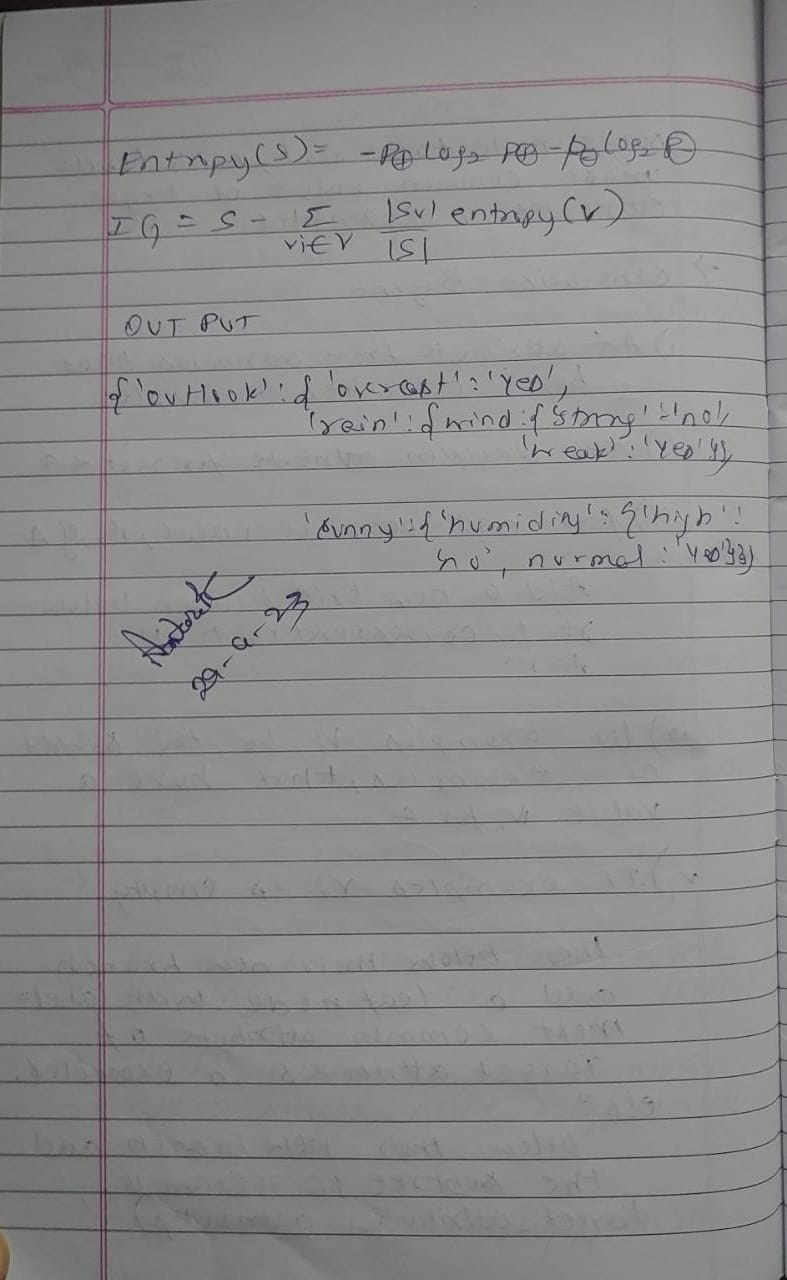 Entripy(S) = -P⊕ log₂ P⊕ - P⊖ log₂ P⊖
IG = S - Σ |Sv| entrapy(v)
vi∈V |S|
OUT PUT
{'outlook': { 'overcast': 'yes',
'rain': { wind: { 'strong' : 'no',
'weak': 'yes' }},
'sunny': { 'humidity': { 'high':
'no', normal : 'yes' }}}
29-9-23